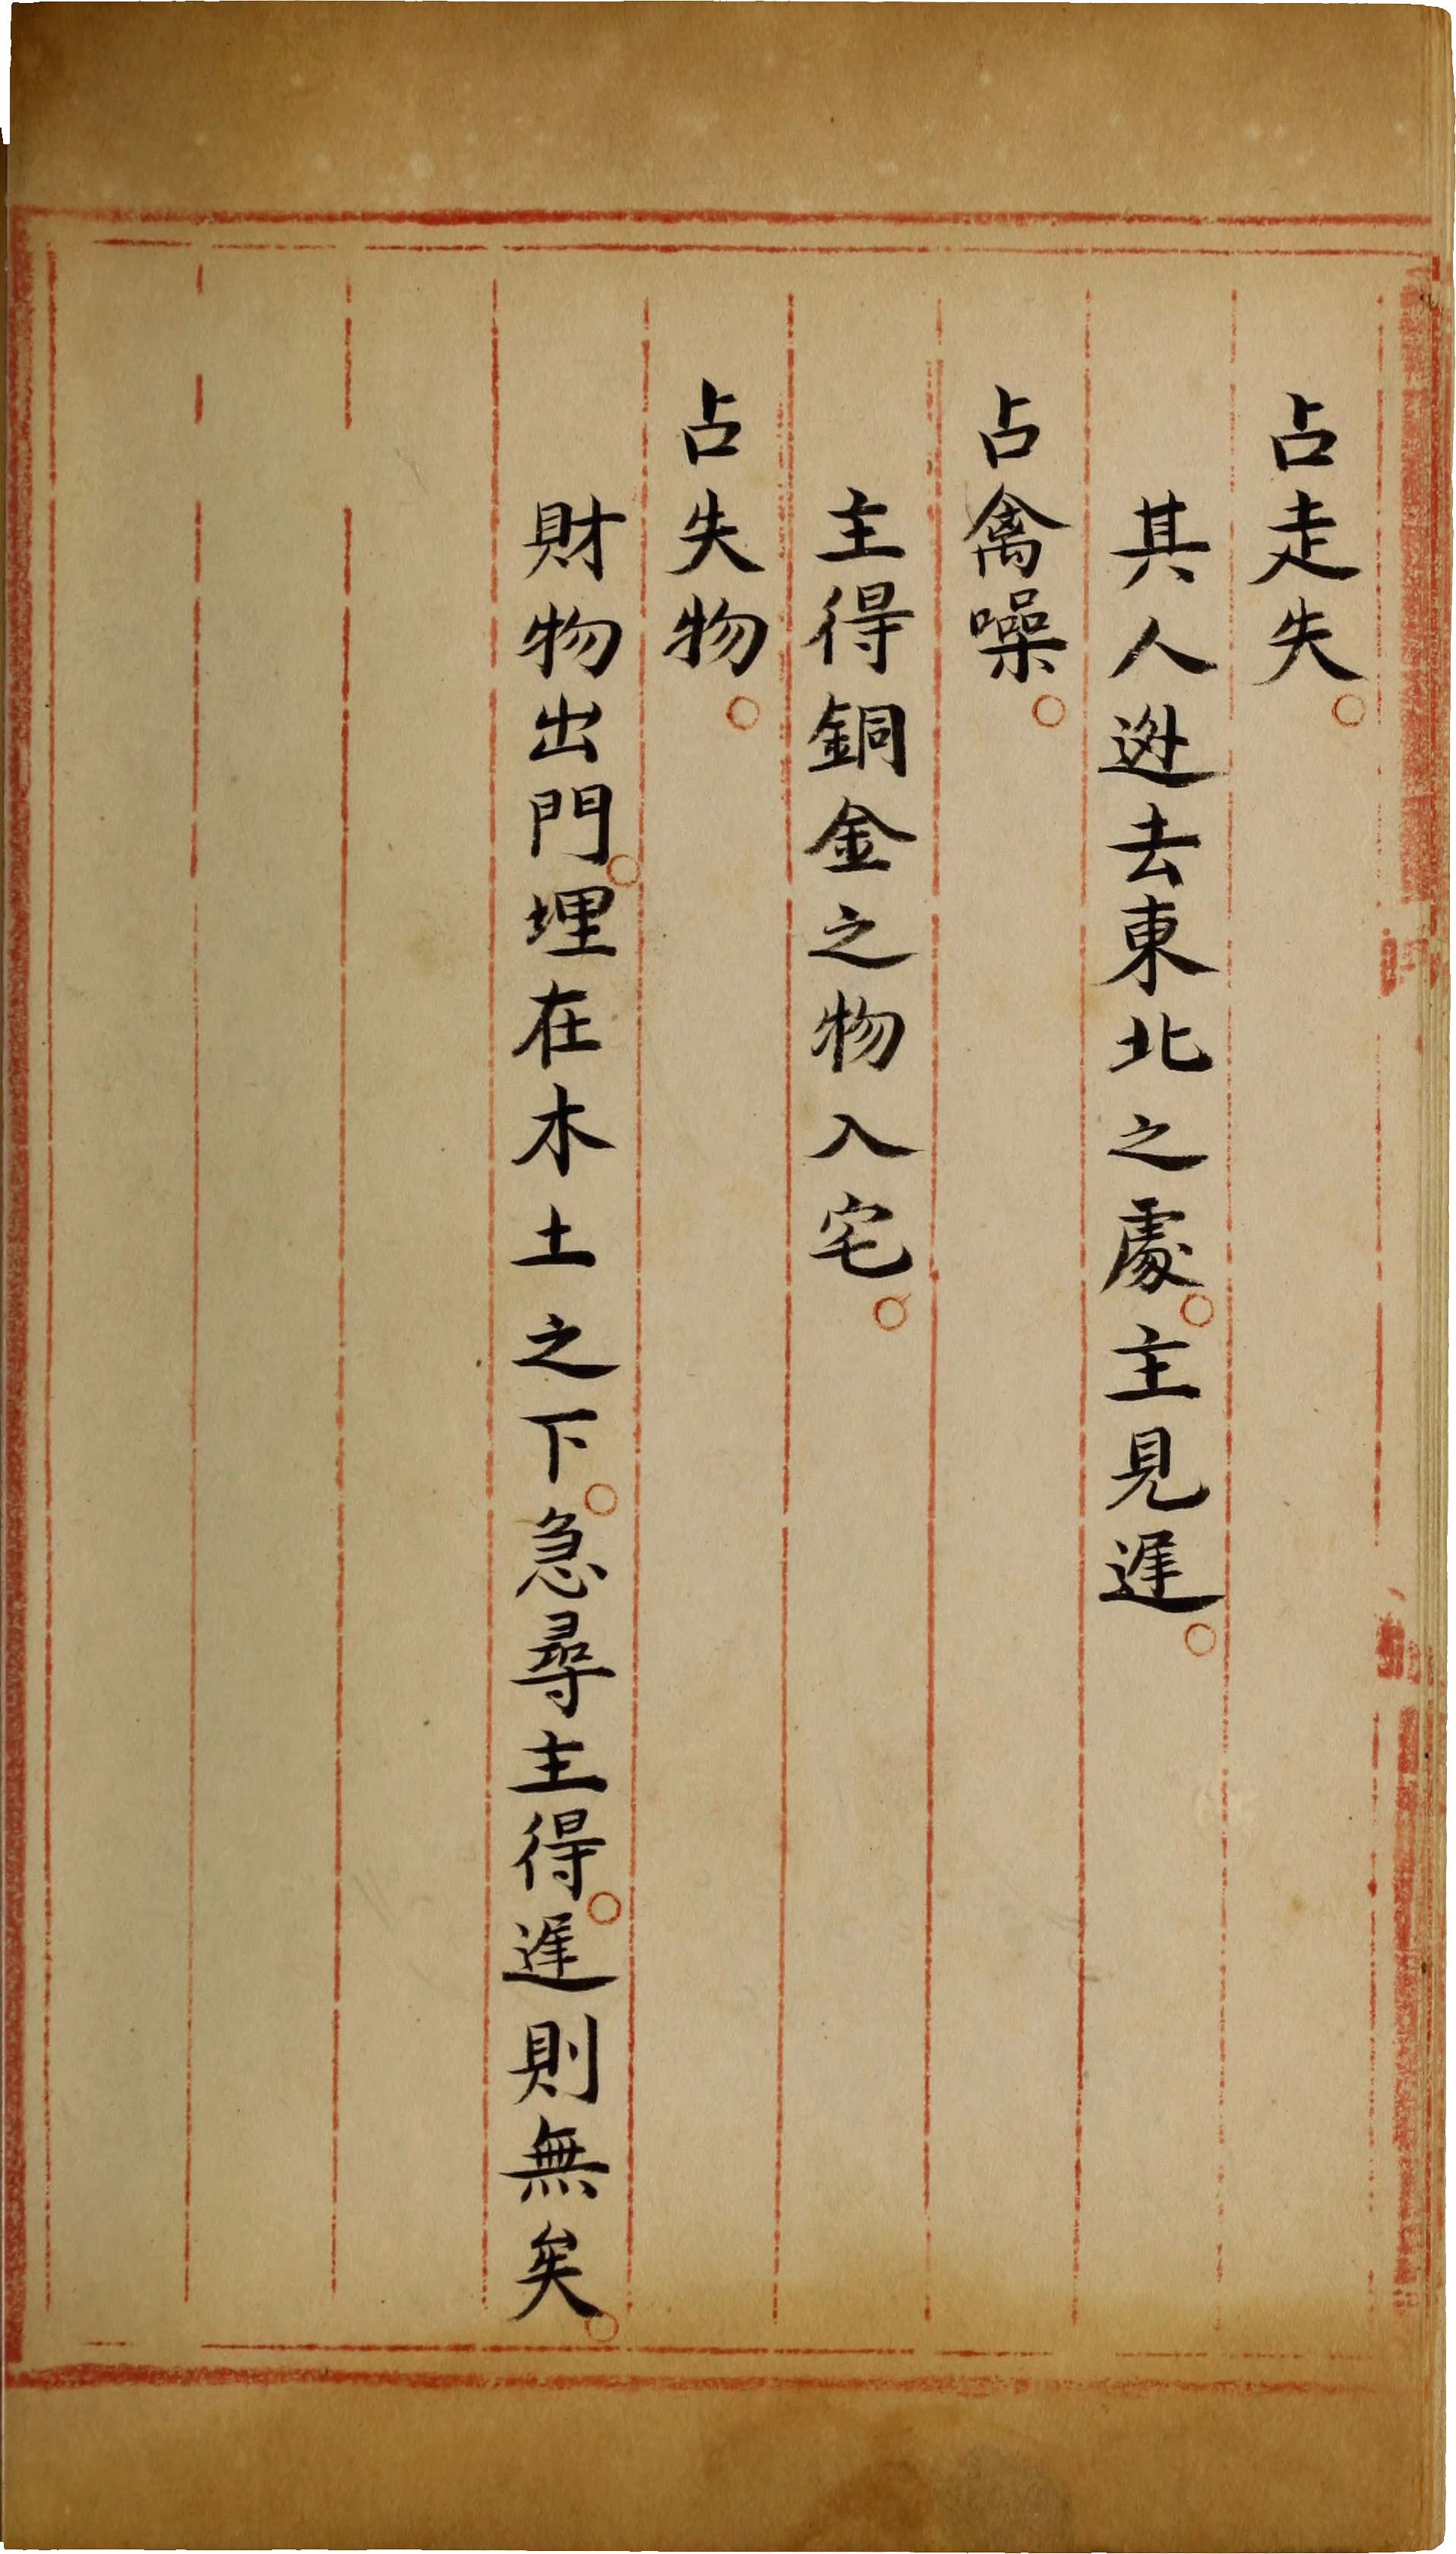 占走失。
其人逃去東北之處。主見遲。
占禽噪。
主得銅金之物入宅。
占失物。
財物出門。埋在木土之下。急尋主得。遲則無矣。